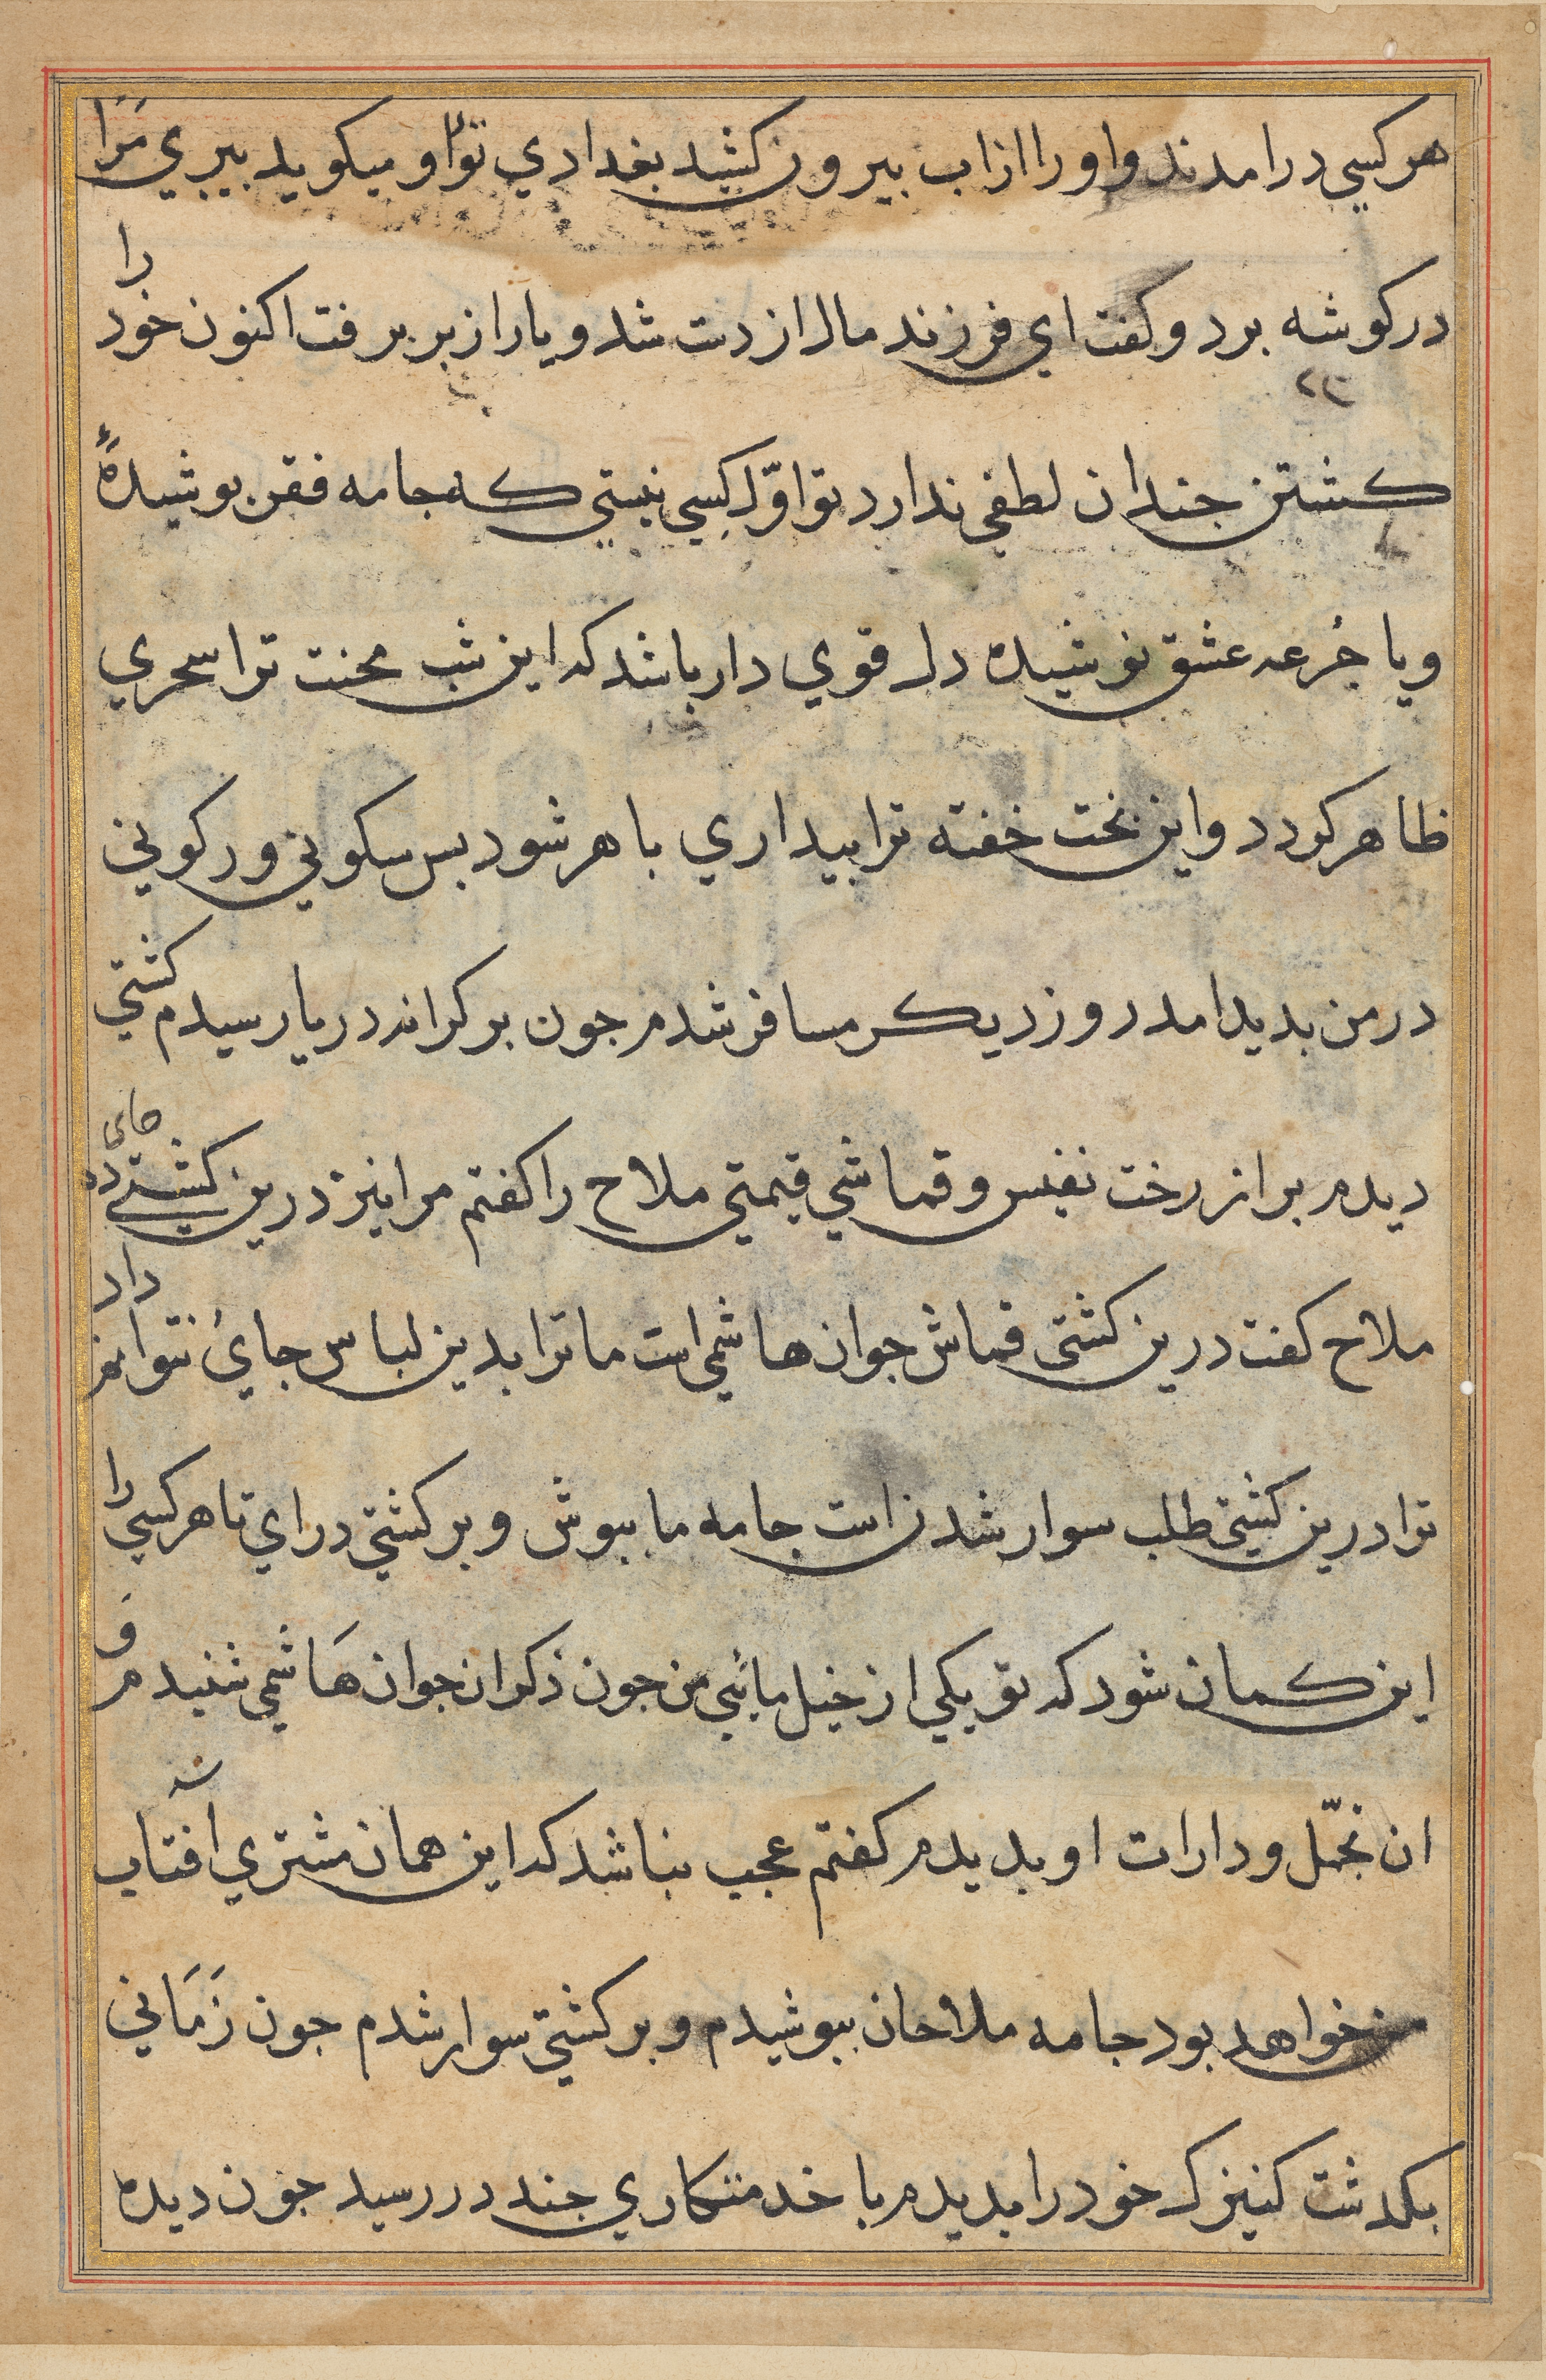 هركسي درامدند واورا ازاب بيرون كشيد بغدادي توا او ميكويد بيري مَرَا
در كوشه برد وكفت اي فرزند مال از دست شد ويار از بر برفت اكنون خود را
كشتن جندان لطفي ندارد تو اوّل كسي نيستي كه جامه فقر بوشيدهٔ
ويا جُرعه عشق نوشيده دل قوي دار باشد كه اين شب محنت ترا سحري
ظاهر كردد واين بخت خفته ترا بيداري باهر شود بس سكوني وركوني
در من بديد امد روز ديكر مسافر شدم جون بر كرانه دريا رسيدم كشتي
ديدم بر از رخت نفيس وقماشي قيمتي ملاح را كفتم مرا نيز درين كشتي جاي ده
ملاح كفت درين كشتي قماش جوان هاشمي است ما ترا بدين لباس جائ نتوانم داد
ترا درين كشتي طلب سوار شدن است جامه ما ببوش و بر كشتي دراي تا هركسي را
اين كمان شود كه تو يكي از خيل مائي من جون ذكر ان جوان هَاشمي شنيدم وَ
ان تجمّل ودارات او بديدم كفتم عجب نباشد كه اين همان مشتري افتاب
من خواهد بود جامه ملاحان ببوشيدم و بر كشتي سوار شدم جون زَمَاني
بكذشت كنيزك خود را بديدم با خدمتكاري جند دررسيد جون ديده